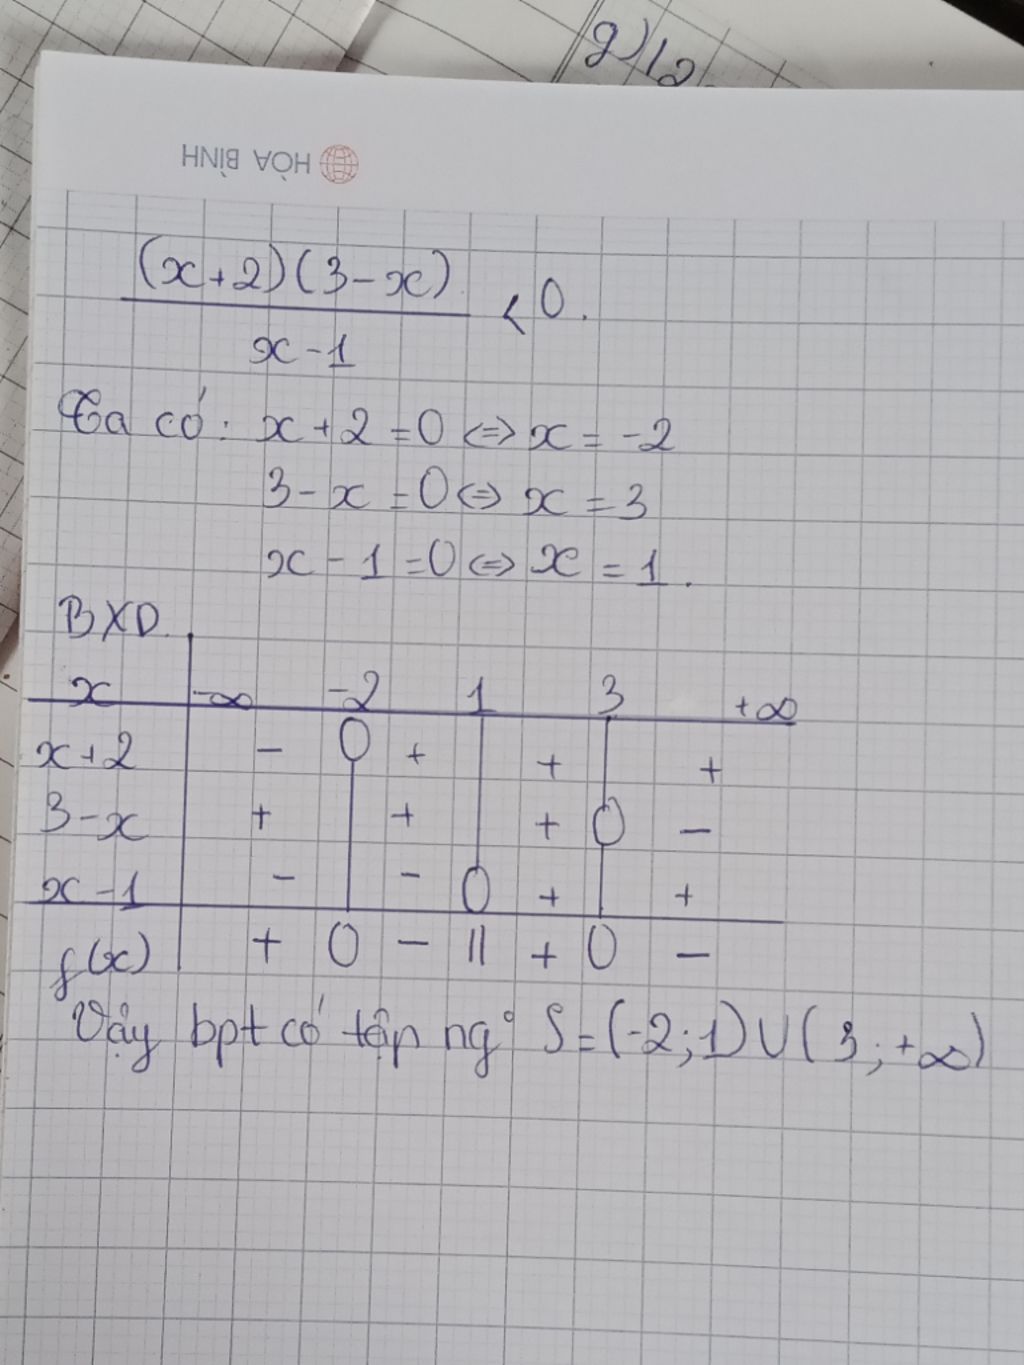 g) 12
HÒA BÌNH
(x+2)(3-x)
< 0.
x-1
Ta có: x+2=0 <=> x=-2
3-x=0 <=> x=3
x-1=0 <=> x=1.
BXD.
x -∞ -2 1 3 +∞
x+2 - 0 + + +
3-x + + + 0 -
x-1 - - 0 + +
f(x) + 0 - || + 0 -
Vậy bpt có tập ng° S=(-2;1)∪(3;+∞)